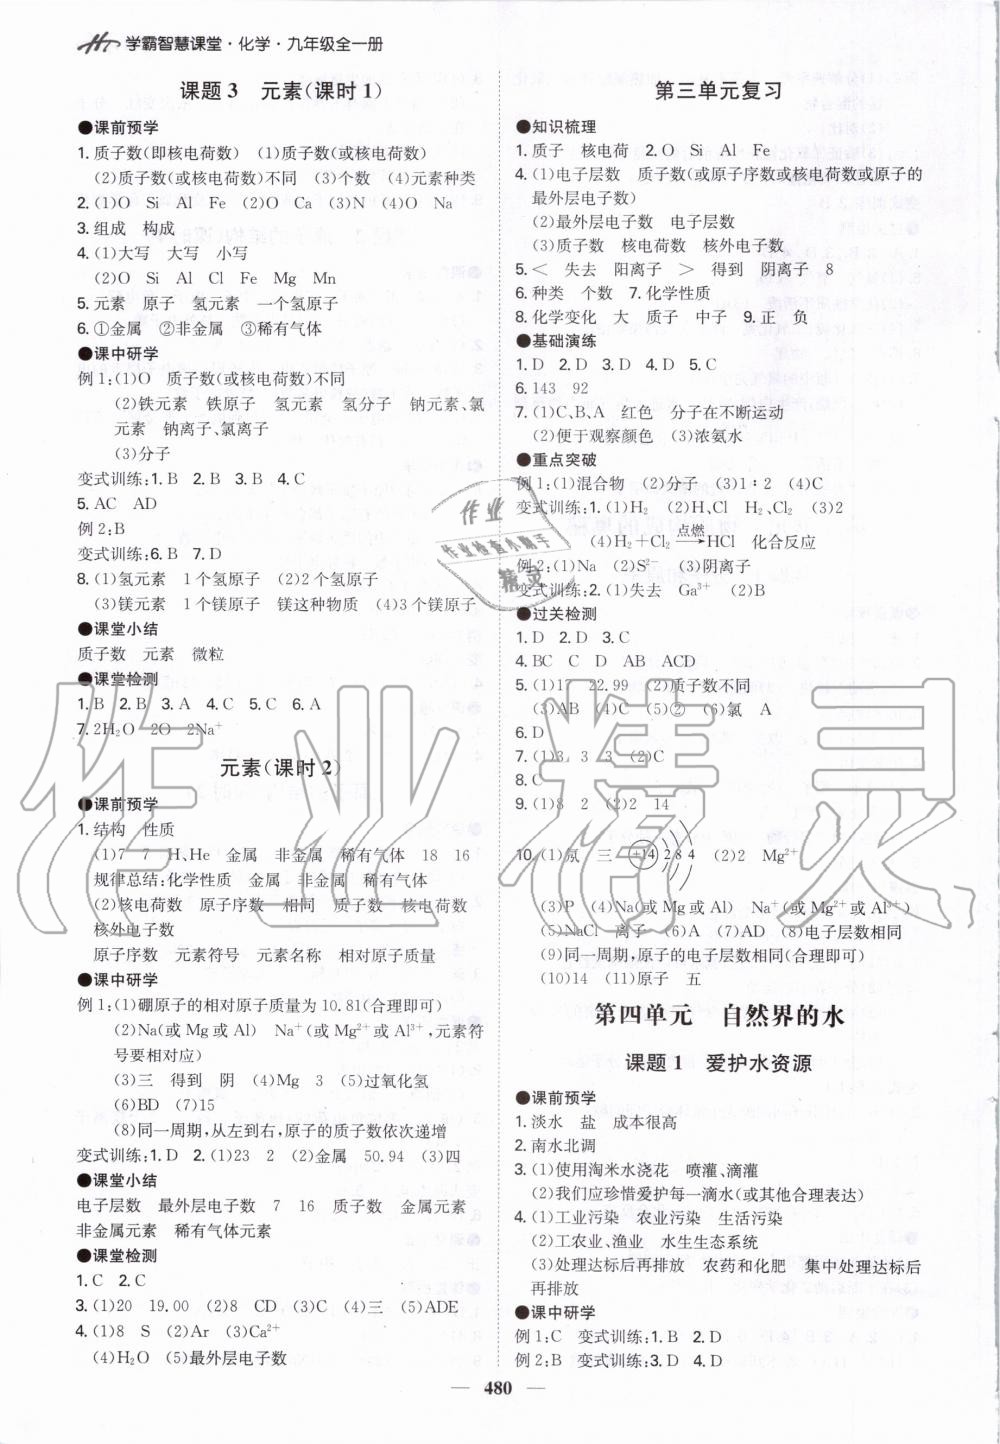 学霸智慧课堂·化学·九年级全一册
课题3 元素(课时1)
●课前预学
1.质子数(即核电荷数) (1)质子数(或核电荷数)
(2)质子数(或核电荷数)不同 (3)个数 (4)元素种类
2.(1)O Si Al Fe (2)O Ca (3)N (4)O Na
3.组成 构成
4.(1)大写 大写 小写
(2)O Si Al Cl Fe Mg Mn
5.元素 原子 氢元素 一个氢原子
6.①金属 ②非金属 ③稀有气体
●课中研学
例1:(1)O 质子数(或核电荷数)不同
(2)铁元素 铁原子 氢元素 氢分子 钠元素、氯
元素 钠离子、氯离子
(3)分子
变式训练:1.B 2.B 3.B 4.C
5.AC AD
例2:B
变式训练:6.B 7.D
8.(1)氢元素 1个氢原子 (2)2个氢原子
(3)镁元素 1个镁原子 镁这种物质 (4)3个镁原子
●课堂小结
质子数 元素 微粒
●课堂检测
1.B 2.B 3.A 4.C 5.C 6.A
7.2H₂O 2O 2Na⁺
元素(课时2)
●课前预学
1.结构 性质
(1)7 7 H、He 金属 非金属 稀有气体 18 16
规律总结:化学性质 金属 非金属 稀有气体
(2)核电荷数 原子序数 相同 质子数 核电荷数
核外电子数
原子序数 元素符号 元素名称 相对原子质量
●课中研学
例1:(1)硼原子的相对原子质量为10.81(合理即可)
(2)Na(或Mg或Al) Na⁺(或Mg²⁺或Al³⁺,元素符
号要相对应)
(3)三 得到 阴 (4)Mg 3 (5)过氧化氢
(6)BD (7)15
(8)同一周期,从左到右,原子的质子数依次递增
变式训练:1.D 2.(1)23 2 (2)金属 50.94 (3)四
●课堂小结
电子层数 最外层电子数 7 16 质子数 金属元素
非金属元素 稀有气体元素
●课堂检测
1.C 2.C
3.(1)20 19.00 (2)8 CD (3)C (4)三 (5)ADE
4.(1)8 S (2)Ar (3)Ca²⁺
(4)H₂O (5)最外层电子数
第三单元复习
●知识梳理
1.质子 核电荷 2.O Si Al Fe
4.(1)电子层数 质子数(或原子序数或核电荷数或原子的
最外层电子数)
(2)最外层电子数 电子层数
(3)质子数 核电荷数 核外电子数
5.< 失去 阳离子 > 得到 阴离子 8
6.种类 个数 7.化学性质
8.化学变化 大 质子 中子 9.正 负
●基础演练
1.D 2.D 3.D 4.D 5.C
6.143 92
7.(1)C、B、A 红色 分子在不断运动
(2)便于观察颜色 (3)浓氨水
●重点突破
例1:(1)混合物 (2)分子 (3)1∶2 (4)C
变式训练:1.(1)H₂ (2)H、Cl H₂、HCl、Cl₂ (3)2
(4)H₂+Cl₂ 点燃→ HCl 化合反应
例2:(1)Na (2)S²⁻ (3)阴离子
变式训练:2.(1)失去 Ga³⁺ (2)B
●过关检测
1.D 2.D 3.C
4.BC C D AB ACD
5.(1)17 22.99 (2)质子数不同
(3)AB (4)C (5)② (6)氯 A
6.D
7.(1)3 3 3 (2)C
8.C
9.(1)8 2 (2)2 14
10.(1)氖 三 +14 2 8 4 (2)2 Mg²⁺
(3)P (4)Na(或Mg或Al) Na⁺(或Mg²⁺或Al³⁺)
(5)NaCl 离子 (6)A (7)AD (8)电子层数相同
(9)同一周期,原子的电子层数相同(合理即可)
(10)14 (11)原子 五
第四单元 自然界的水
课题1 爱护水资源
●课前预学
1.淡水 盐 成本很高
2.南水北调
3.(1)使用淘米水浇花 喷灌、滴灌
(2)我们应珍惜爱护每一滴水(或其他合理表达)
4.(1)工业污染 农业污染 生活污染
(2)工农业、渔业 水生生态系统
(3)处理达标后再排放 农药和化肥 集中处理达标后
再排放
●课中研学
例1:C 变式训练:1.B 2.D
例2:B 变式训练:3.D 4.D
480
作业
作业检查小助手
精灵
作业精灵